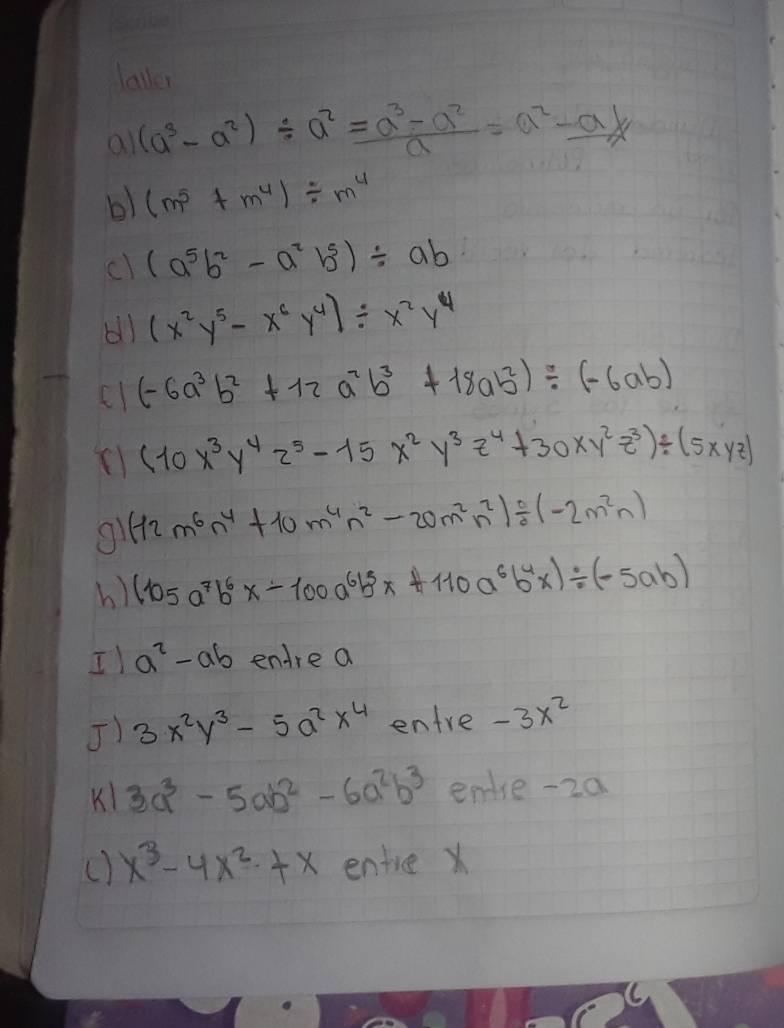 Taller
a) (a³ - a²) ÷ a² = a³ - a² / a = a² - a
b) (m⁵ + m⁴) ÷ m⁴
c) (a⁵b² - a²b⁵) ÷ ab
d) (x²y⁵ - x⁶y⁴) ÷ x²y⁴
e) (-6a³b² + 12a²b³ + 18ab²) ÷ (-6ab)
f) (10x³y⁴z⁵ - 15x²y³z⁴ + 30xy²z³) ÷ (5xyz)
g) (12m⁶n⁴ + 10m⁴n² - 20m²n²) ÷ (-2m²n)
h) (105a⁷b⁶x - 100a⁶b⁵x + 110a⁶b⁴x) ÷ (-5ab)
I) a² - ab entre a
J) 3x²y³ - 5a²x⁴ entre -3x²
K) 3a³ - 5ab² - 6a²b³ entre -2a
L) x³ - 4x² + x entre x